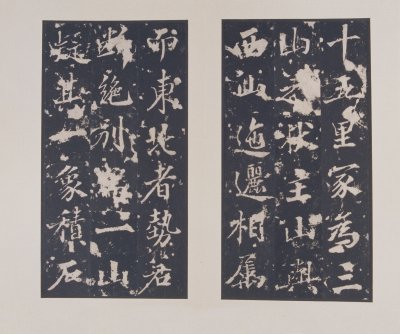 十五里冢為三
山狀主山與
西山迤邐相屬
而東北者勢若
斷絕別一山
疑其一象積石